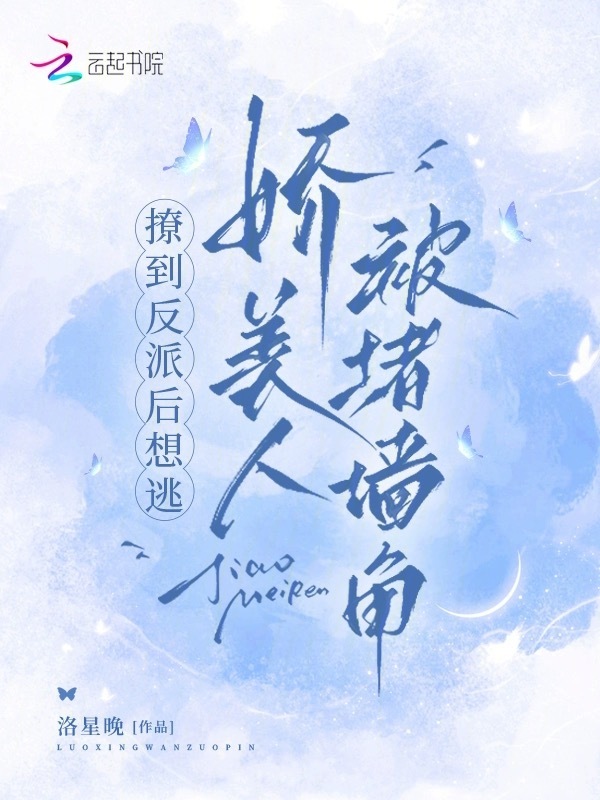 云起书院
撩到反派后想逃
娇美人
被堵墙角
Jiao
MeiRen
洛星晚 [作品]
LUOXINGWANZUOPIN